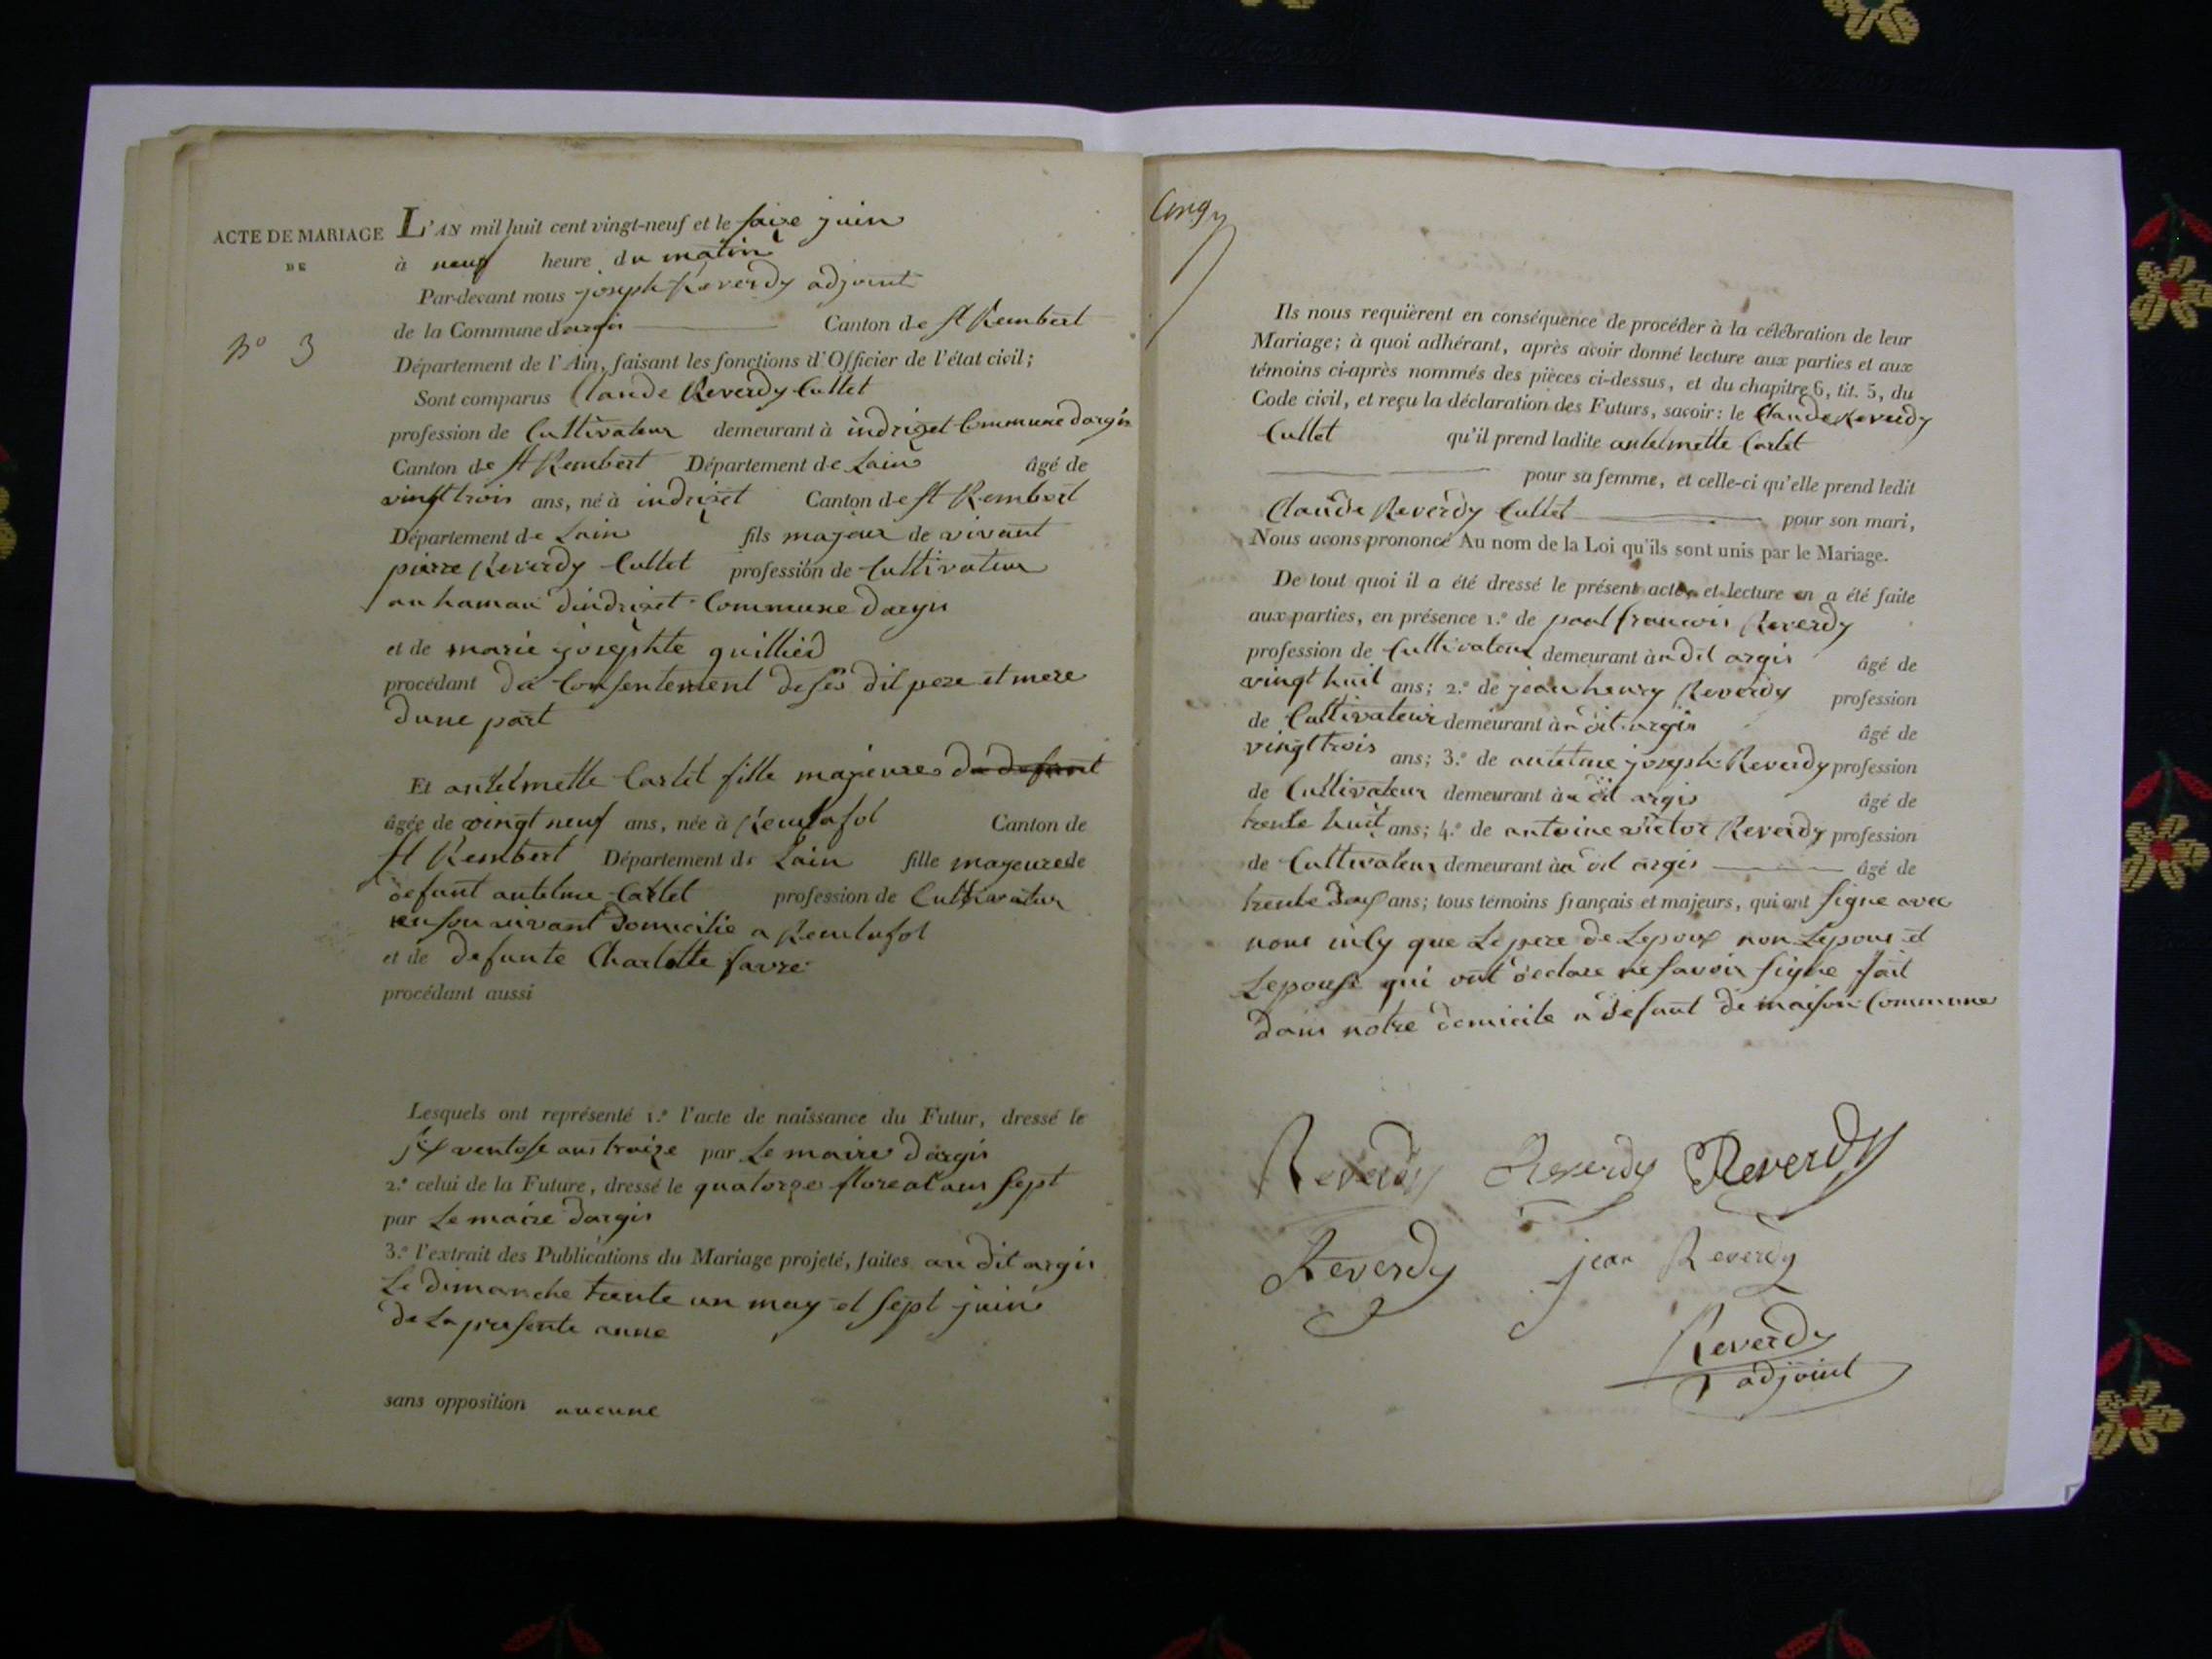 ACTE DE MARIAGE
DE
N° 3
L'AN mil huit cent vingt-neuf et le saize juin
à neuf heure du matin
Par-devant nous joseph Reverdy adjoint
de la Commune dargis Canton de St Rembert
Département de l'Ain, faisant les fonctions d'Officier de l'état civil;
Sont comparus Claude Reverdy Cullet
profession de Cultivateur demeurant à indrizet Commune dargis
Canton de St Rembert Département de Lain âgé de
vingt trois ans, né à indrizet Canton de St Rembert
Département de Lain fils majeur de vivant
pierre Reverdy Cullet profession de Cultivateur
au hamau dindrizet Commune dargis
et de marie josephte guillied
procédant du Consentement de ses dit pere et mere
dune part
Et antelmette Carlet fille majeure du defunt
âgée de vingt neuf ans, née à Reculafol Canton de
St Rembert Département de Lain fille majeure de
defunt antelme Carlet profession de Cultivateur
en son vivant domicilie a Reculafol
et de defunte Charlotte favre
procédant aussi
Lesquels ont représenté 1.º l'acte de naissance du Futur, dressé le
six ventose ans traize par Le maire dargis
2.º celui de la Future, dressé le quatorze floreal ans sept
par Le maire dargis
3.º l'extrait des Publications du Mariage projeté, faites au dit argis
Le dimanche trente un may et sept juin
de La presente anne
sans opposition aucune
Ils nous requièrent en conséquence de procéder à la célébration de leur
Mariage; à quoi adhérant, après avoir donné lecture aux parties et aux
témoins ci-après nommés des pièces ci-dessus, et du chapitre 6, tit. 5, du
Code civil, et reçu la déclaration des Futurs, savoir: le Claude Reverdy
Cullet qu'il prend ladite antelmette Carlet
pour sa femme, et celle-ci qu'elle prend ledit
Claude Reverdy Cullet pour son mari,
Nous avons prononcé Au nom de la Loi qu'ils sont unis par le Mariage.
De tout quoi il a été dressé le présent acte, et lecture en a été faite
aux parties, en présence 1.º de paul francois Reverdy
profession de Cultivateur demeurant à u dit argis âgé de
vingt huit ans; 2.º de jean henry Reverdy profession
de Cultivateur demeurant à u dit argis âgé de
vingt trois ans; 3.º de antelme joseph Reverdy profession
de Cultivateur demeurant à u dit argis âgé de
trente huit ans; 4.º de antoine victor Reverdy profession
de Cultivateur demeurant à u dit argis âgé de
trente ans; tous témoins français et majeurs, qui ont signe avec
nous que Le pere de Lepoux non Lepoux et
Lepouse qui ont declare ne savoir signe fait
dans notre domicile a defaut de maison Commune
Reverdy Reverdy Reverdy
Reverdy jean Reverdy
Reverdy
adjoint